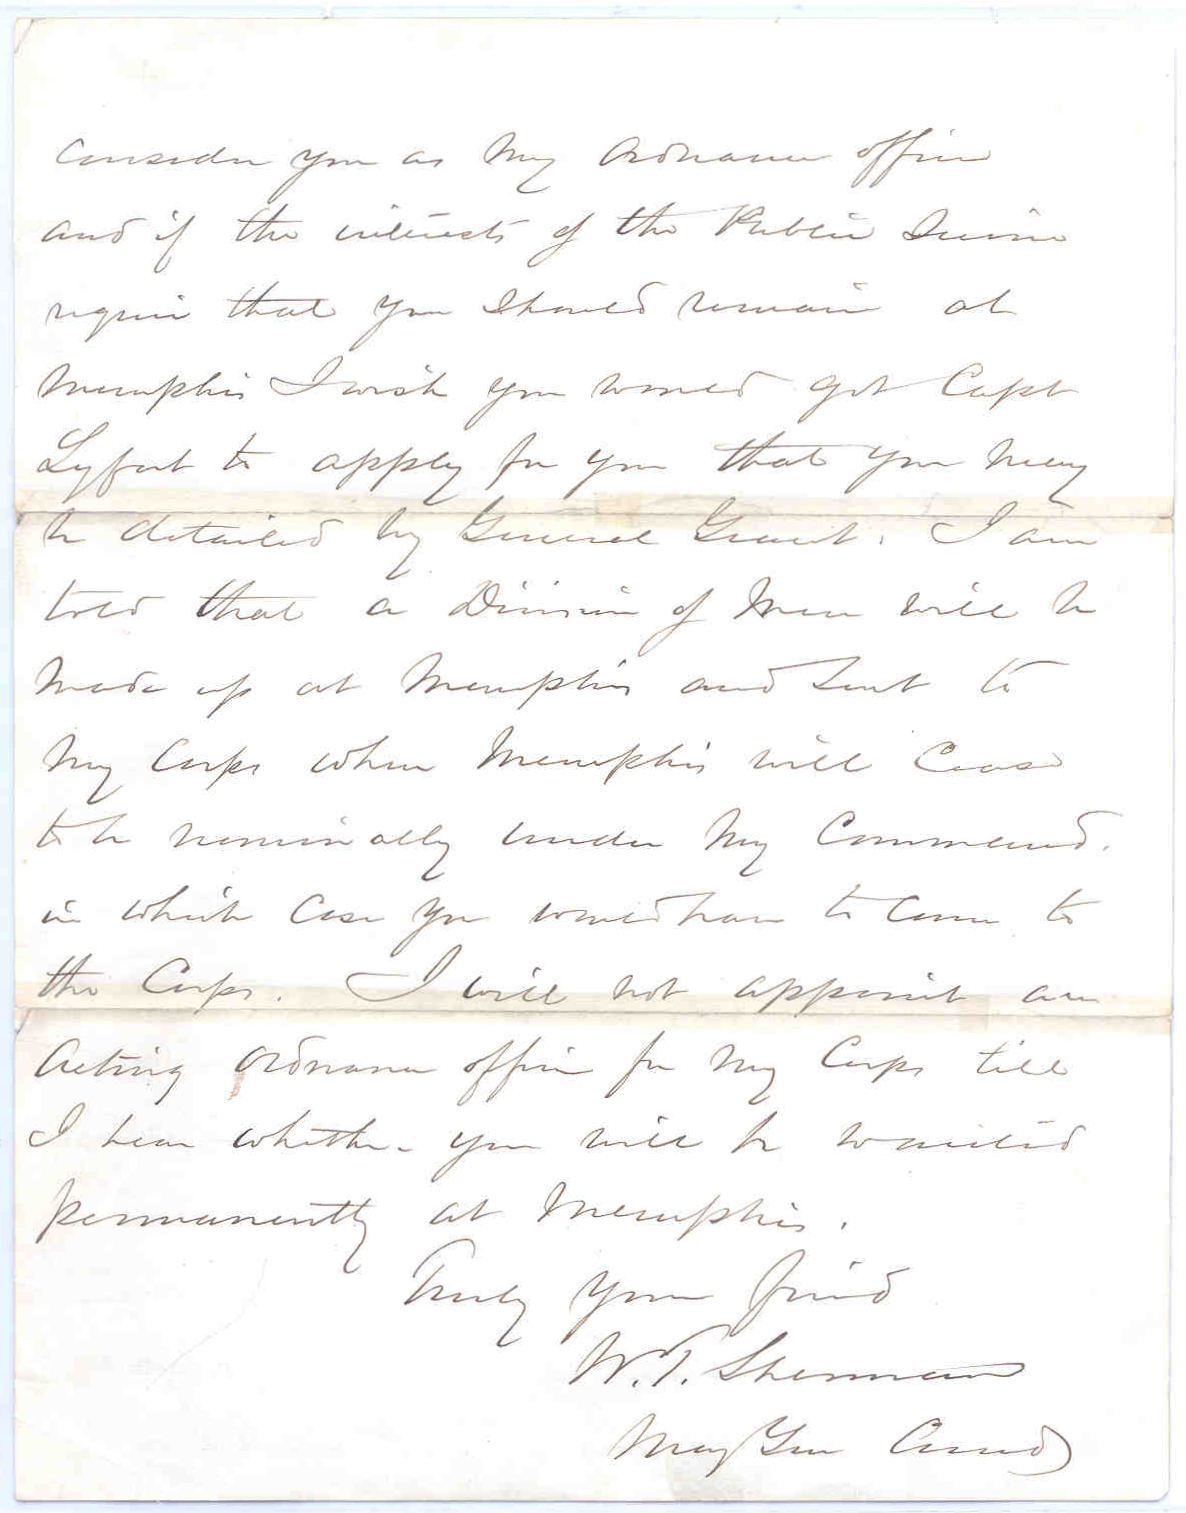 consider you as my ordnance officer
and if the interests of the Public Service
require that you should remain at
Memphis I wish you would get Capt
Lyford to apply for you that you may
be detailed by General Grant. I am
told that a Division of Men will be
made up at Memphis and sent to
my Corps when Memphis will cease
to be nominally under my Command.
in which case you would have to come to
the Corps. I will not appoint an
Acting ordnance officer for my Corps till
I hear whether you will be wanted
permanently at Memphis.
Truly your friend
W.T. Sherman
Maj Gen Comd